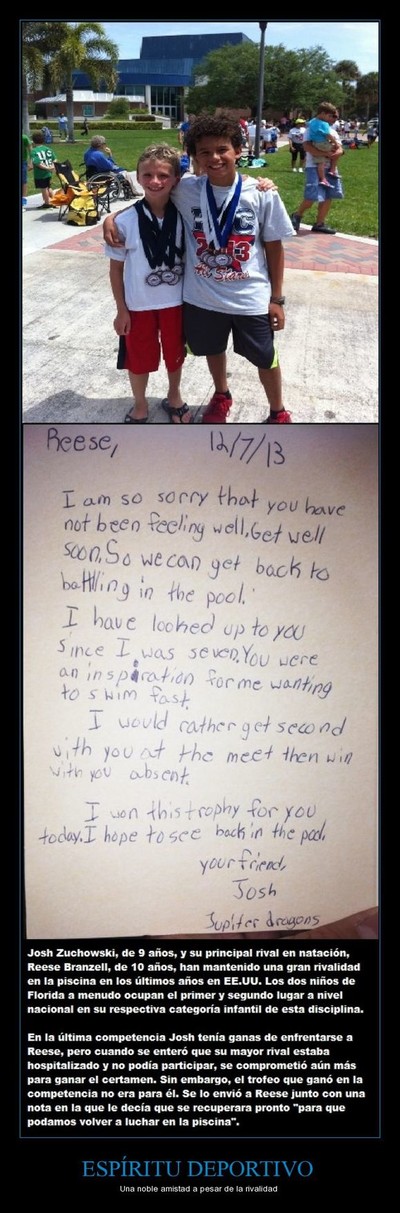 2013
All Stars
Reese, 12/7/13
I am so sorry that you have
not been feeling well. Get well
soon. So we can get back to
battling in the pool.
I have looked up to you
since I was seven. You were
an inspiration for me wanting
to swim fast.
I would rather get second
with you at the meet then win
with you absent.
I won this trophy for you
today. I hope to see back in the pool.
your friend,
Josh
Jupiter dragons
Josh Zuchowski, de 9 años, y su principal rival en natación,
Reese Branzell, de 10 años, han mantenido una gran rivalidad
en la piscina en los últimos años en EE.UU. Los dos niños de
Florida a menudo ocupan el primer y segundo lugar a nivel
nacional en su respectiva categoría infantil de esta disciplina.
En la última competencia Josh tenía ganas de enfrentarse a
Reese, pero cuando se enteró que su mayor rival estaba
hospitalizado y no podía participar, se comprometió aún más
para ganar el certamen. Sin embargo, el trofeo que ganó en la
competencia no era para él. Se lo envió a Reese junto con una
nota en la que le decía que se recuperara pronto "para que
podamos volver a luchar en la piscina".
ESPÍRITU DEPORTIVO
Una noble amistad a pesar de la rivalidad